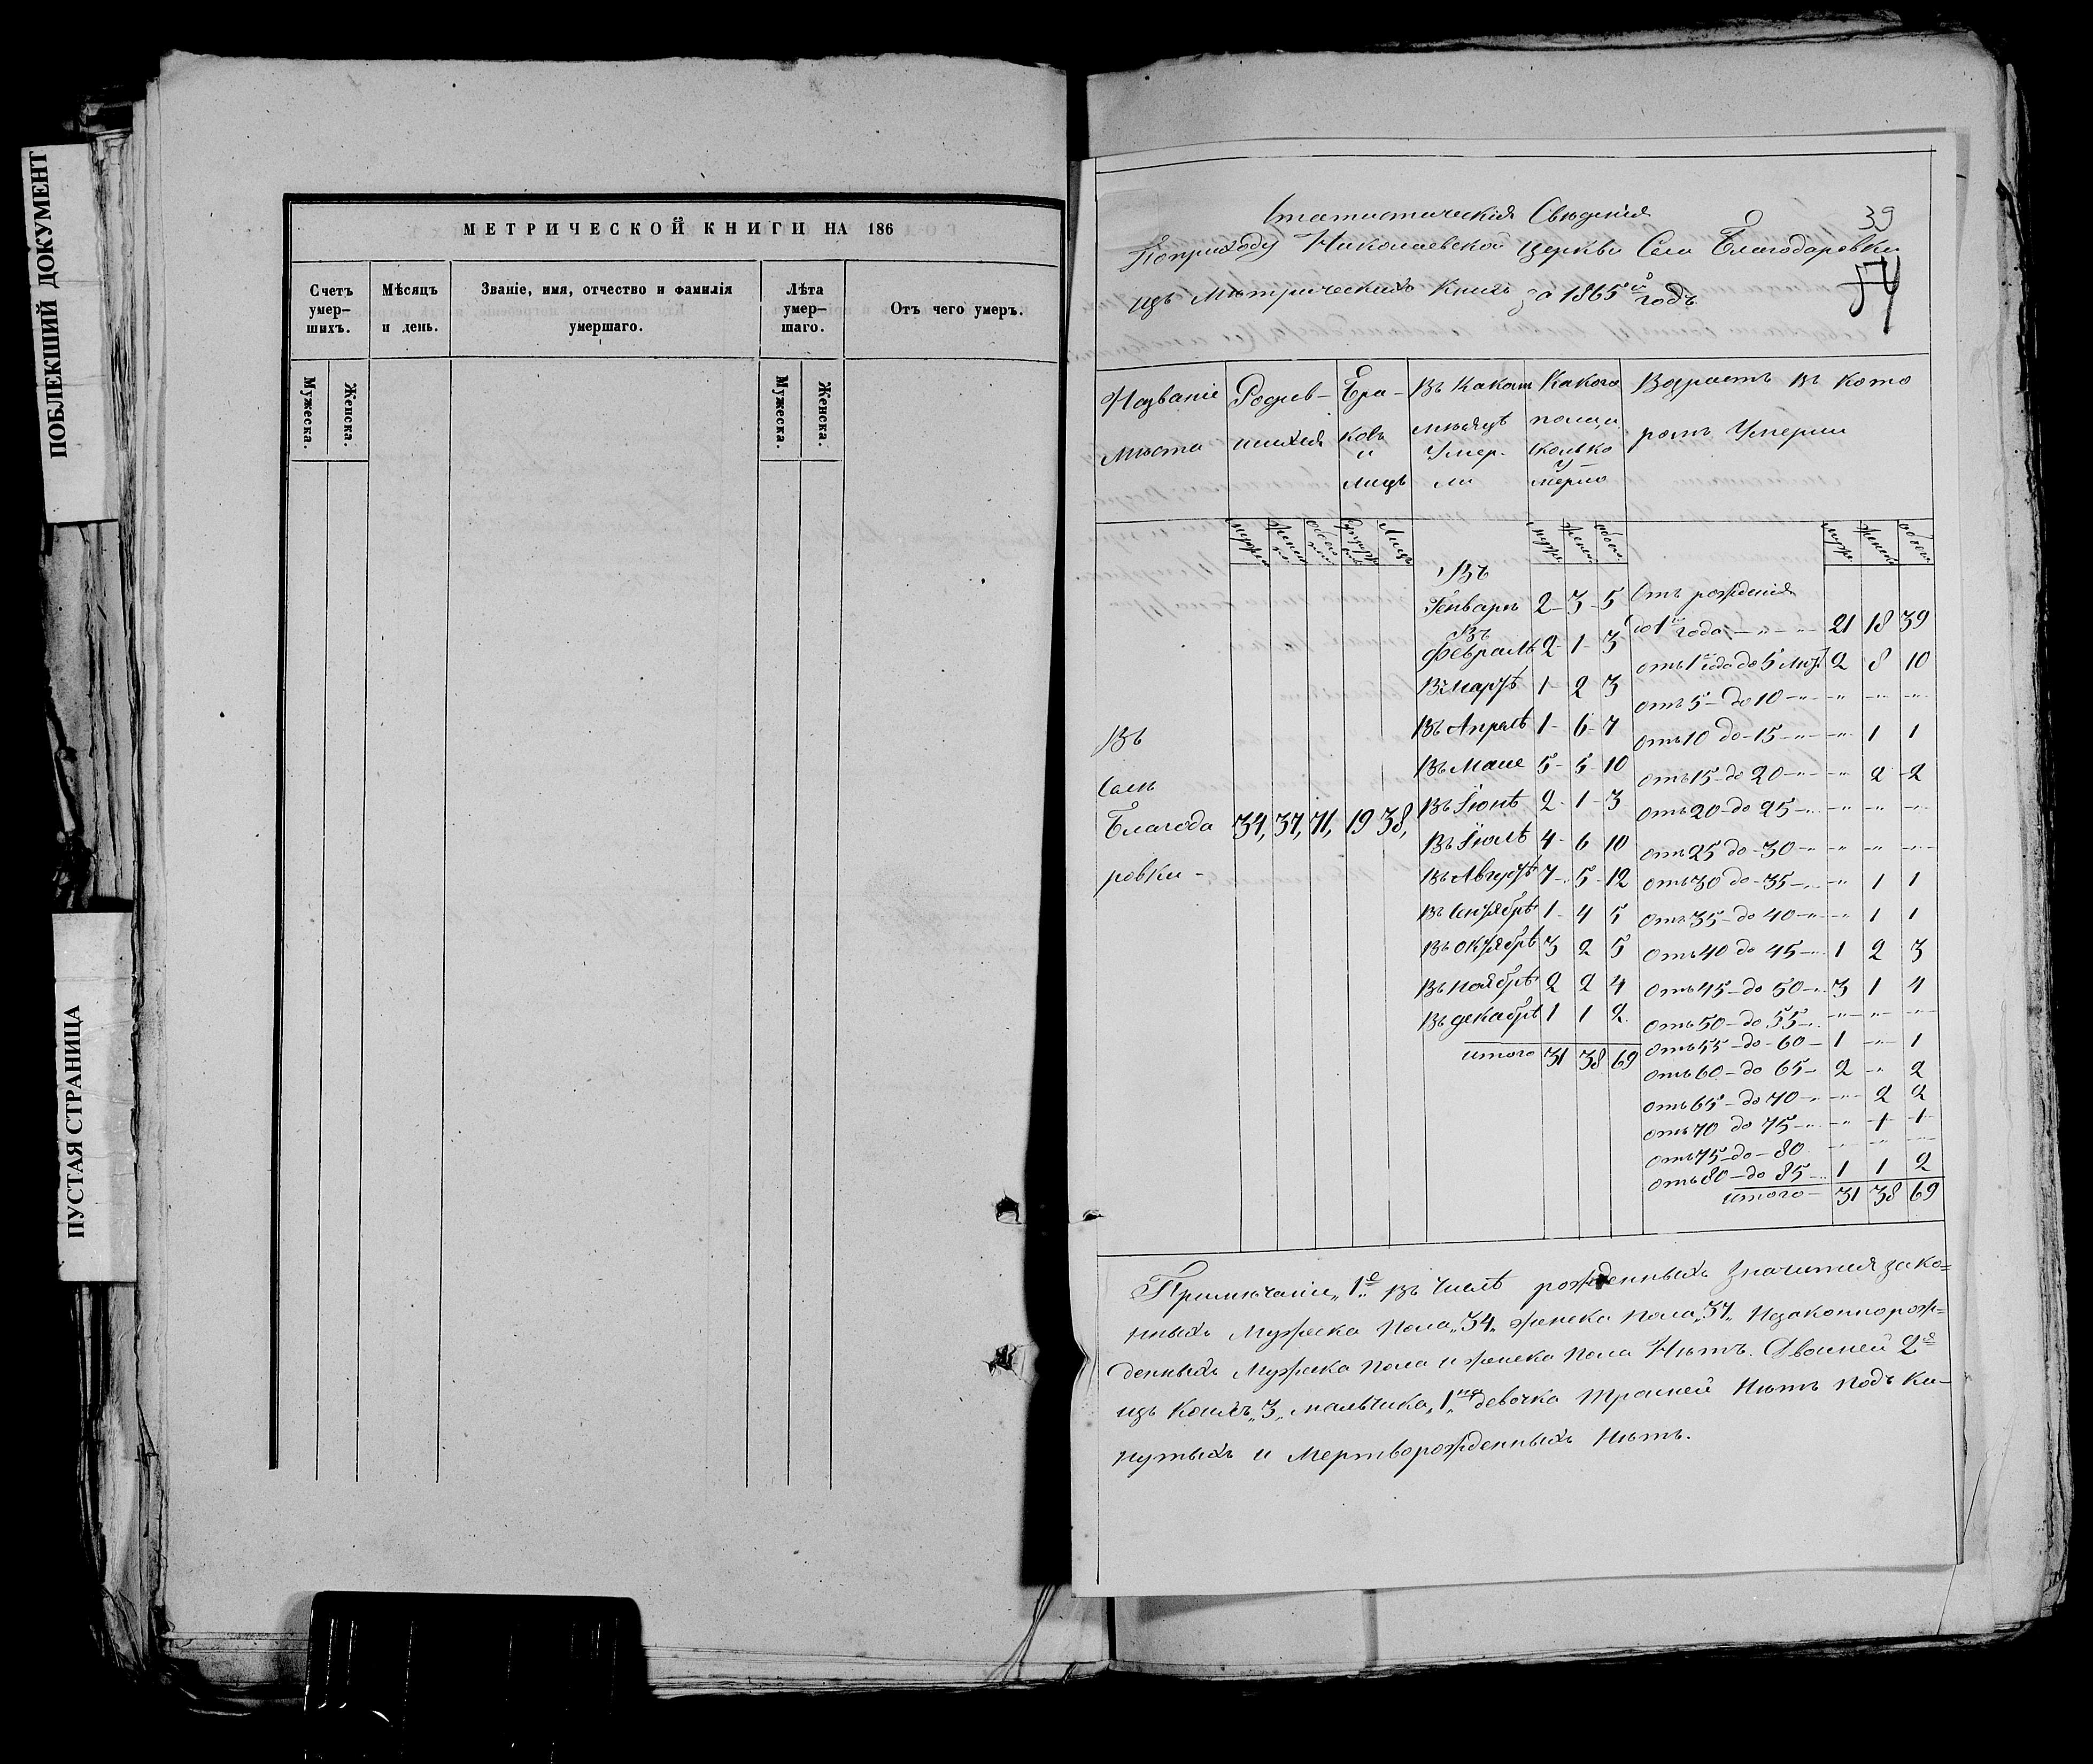 ПОБЛЕКШИЙ ДОКУМЕНТ
ПУСТАЯ СТРАНИЦА
МЕТРИЧЕСКОЙ КНИГИ НА 186
Счетъ умер-шихъ.
Мѣсяцъ и день.
Званіе, имя, отчество и фамилія умершаго.
Лѣта умер-шаго.
Отъ чего умеръ.
Мужеска.
Женска.
Мужеска.
Женска.
39
Статистическія Свѣдѣнія
По приходу Николаевской Церкви Села Благодаровки
54
изъ Метрическихъ Книгъ за 1865й годъ
Названіе мѣста
Родив-шихся
Бра-ковъ и лицъ
Въ какомъ мѣсяцѣ Умер-ли
Какого пола и сколько У-мерло
Возрастъ въ кото ромъ Умерли
Въ Селѣ Благода ровки - 34, 37, 71, 19 38,
Въ Генварѣ 2 - 3 - 5
Въ Февралѣ 2 - 1 - 3
Въ Мартѣ 1 - 2 3
Въ Апрелѣ 1 - 6 - 7
Въ Маие 5 - 5 - 10
Въ Іюнѣ 2 - 1 - 3
Въ Іюлѣ 4 - 6 10
Въ Августѣ 7 - 5 - 12
Въ Сентябрѣ 1 - 4 5
Въ Октябрѣ 3 2 5
Въ Ноябрѣ 2 2 4
Въ декабрѣ 1 1 2
итого 31 38 69
Отъ рожденія
до 1го года - " - " - 21 18 39
отъ 1го года до 5 лѣтъ 2 8 10
отъ 5 - до 10 - " - " - " - "
отъ 10 до - 15 - " - " 1 1
отъ 15 - до 20 - " - " 2 - 2
отъ 20 - до 25 - " - " - " - "
отъ 25 до - 30 - " - " - " - "
отъ 30 до - 35 - " - " 1 1
отъ 35 - до 40 - " - " 1 1
отъ 40 до 45 - " 1 2 3
отъ 45 - до 50 - " 3 1 4
отъ 50 - до 55 - " - " - " - "
отъ 55 - до - 60 - 1 - " - 1
отъ 60 - до 65 - 2 - " 2
отъ 65 - до 70 - " - " 2 2
отъ 70 до 75 - " - " 1 1
отъ 75 - до - 80 - " - " - "
отъ 80 - до 85 - 1 1 2
итого - 31 38 69
Примѣчаніе, 1е въ числѣ рожденныхъ Значится зако=
нныхъ Мужеска пола "34" женска пола "37" Незаконнорож=
денныхъ Мужеска пола и женска пола Нѣтъ. Двоиней 2е
изъ коихъ "3" мальчика, 1на девочка Троиней Нѣтъ подъ ки-
нутыхъ и Мертворожденныхъ Нѣтъ.